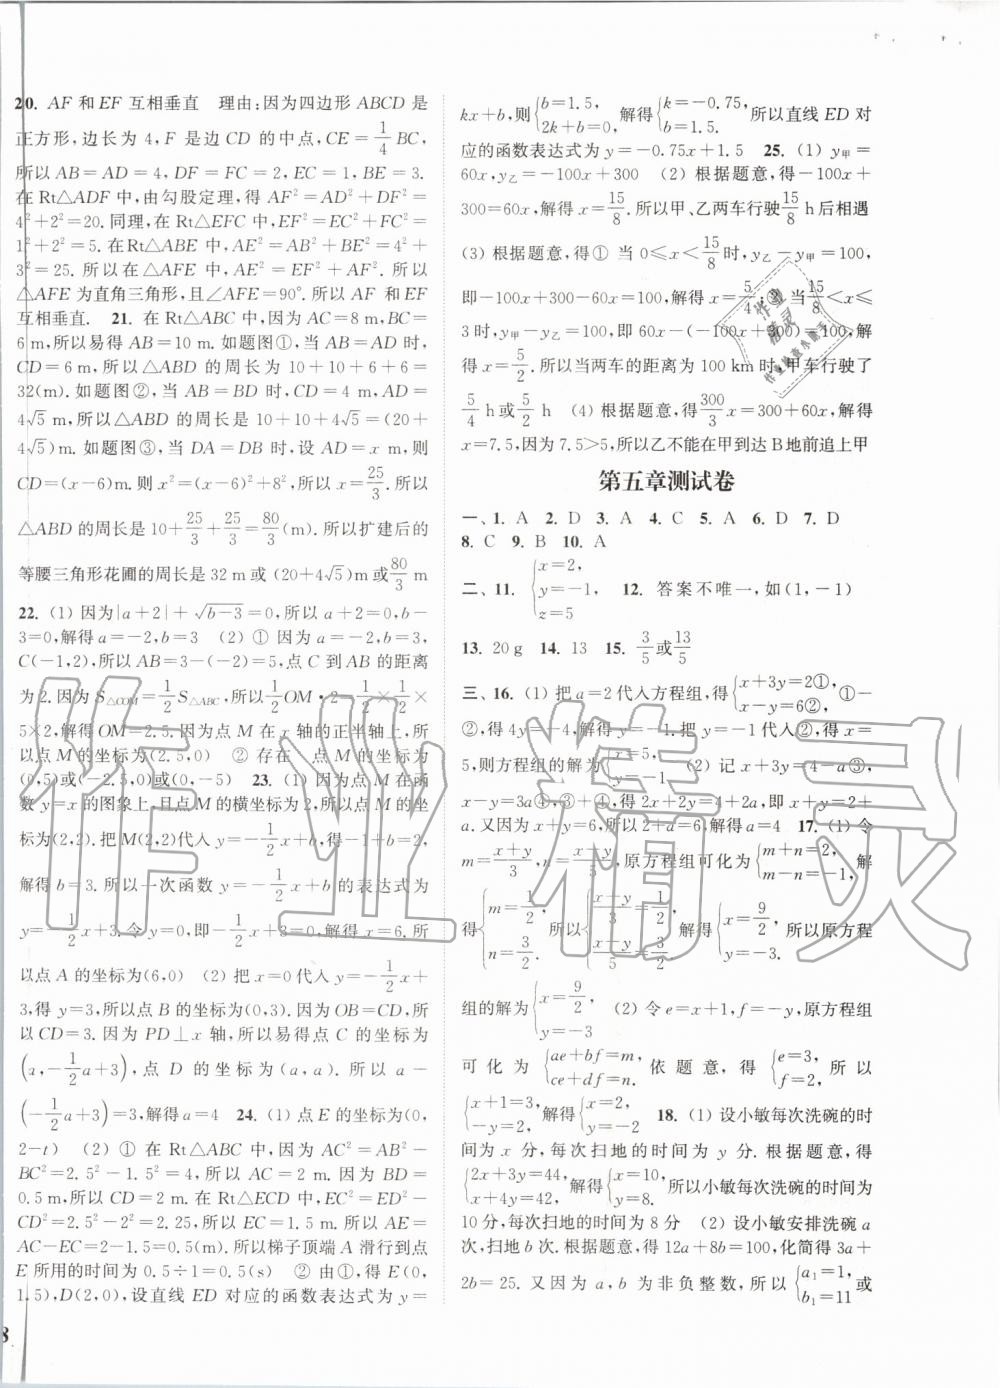 20. AF 和 EF 互相垂直　理由:因为四边形 ABCD 是
正方形,边长为 4,F 是边 CD 的中点,CE=1/4 BC,
所以 AB=AD=4,DF=FC=2,EC=1,BE=3.
在 Rt△ADF 中,由勾股定理,得 AF²=AD²+DF²=
4²+2²=20.同理,在 Rt△EFC 中,EF²=EC²+FC²=
1²+2²=5.在 Rt△ABE 中,AE²=AB²+BE²=4²+
3²=25.所以在△AFE 中,AE²=EF²+AF².所以
△AFE 为直角三角形,且∠AFE=90°.所以 AF 和 EF
互相垂直. 21. 在 Rt△ABC 中,因为 AC=8 m,BC=
6 m,所以易得 AB=10 m. 如题图①,当 AB=AD 时,
CD=6 m,所以△ABD 的周长为 10+10+6+6=
32(m). 如题图②,当 AB=BD 时,CD=4 m,AD=
4√5 m,所以△ABD 的周长是 10+10+4√5=(20+
4√5) m. 如题图③,当 DA=DB 时,设 AD=x m,则
CD=(x-6)m.则 x²=(x-6)²+8²,所以 x=25/3.所以
△ABD 的周长是 10+25/3+25/3=80/3(m). 所以扩建后的
等腰三角形花圃的周长是 32 m 或 (20+4√5)m 或 80/3 m
22. (1) 因为|a+2|+√(b-3)=0,所以 a+2=0,b-
3=0,解得 a=-2,b=3　(2) ① 因为 a=-2,b=3,
C(-1,2),所以 AB=3-(-2)=5,点 C 到 AB 的距离
为 2.因为 S△COM=1/2 S△ABC,所以 1/2 OM·2=1/2×1/2×
5×2,解得 OM=2.5,因为点 M 在 x 轴的正半轴上,所
以点 M 的坐标为(2.5,0)　② 存在　点 M 的坐标为
(0,5)或(-2.5,0)或(0,-5)　23. (1) 因为点 M 在函
数 y=x 的图象上,且点 M 的横坐标为 2,所以点 M 的坐
标为(2,2).把 M(2,2)代入 y=-1/2x+b,得-1+b=2,
解得 b=3.所以一次函数 y=-1/2x+b 的表达式为
y=-1/2x+3.令 y=0,即-1/2x+3=0,解得 x=6.所
以点 A 的坐标为(6,0)　(2) 把 x=0 代入 y=-1/2x+
3,得 y=3,所以点 B 的坐标为(0,3).因为 OB=CD,所
以 CD=3. 因为 PD⊥x 轴,所以易得点 C 的坐标为
(a,-1/2a+3),点 D 的坐标为(a,a). 所以 a-
(-1/2a+3)=3,解得 a=4　24. (1) 点 E 的坐标为(0,
2-t)　(2) ① 在 Rt△ABC 中,因为 AC²=AB²-
BC²=2.5²-1.5²=4,所以 AC=2 m. 因为 BD=
0.5 m,所以 CD=2 m. 在 Rt△ECD 中,EC²=ED²-
CD²=2.5²-2²=2.25,所以 EC=1.5 m. 所以 AE=
AC-EC=2-1.5=0.5(m).所以梯子顶端 A 滑行到点
E 所用的时间为 0.5÷1=0.5(s)　② 由①,得 E(0,
1.5),D(2,0),设直线 ED 对应的函数表达式为 y=
kx+b,则{b=1.5, 2k+b=0, 解得{k=-0.75, b=1.5. 所以直线 ED 对
应的函数表达式为 y=-0.75x+1.5　25. (1) y甲=
60x,y乙=-100x+300　(2) 根据题意,得-100x+
300=60x,解得 x=15/8.所以甲、乙两车行驶15/8 h后相遇
(3) 根据题意,得① 当 0≤x≤15/8时,y乙-y甲=100,
即-100x+300-60x=100,解得 x=5/4;② 当15/8<x≤
3 时,y甲-y乙=100,即 60x-(-100x+300)=100,解
得 x=5/2. 所以当两车的距离为 100 km 时,甲车行驶了
5/4 h 或 5/2 h　(4) 根据题意,得 300/3 x=300+60x,解得
x=7.5,因为 7.5>5,所以乙不能在甲到达 B 地前追上甲
第五章测试卷
一、1. A　2. D　3. A　4. C　5. A　6. D　7. D
8. C　9. B　10. A
二、11. {x=2, y=-1, z=5　12. 答案不唯一,如(1,-1)
13. 20 g　14. 13　15. 3/5或13/5
三、16. (1) 把 a=2 代入方程组,得{x+3y=2①, x-y=6②, ①-
②,得 4y=-4,解得 y=-1.把 y=-1 代入②,得 x=
5,则方程组的解为{x=5, y=-1　(2) 记 x+3y=4-a③,
x-y=3a④,③+④,得 2x+2y=4+2a,即 x+y=2+
a.又因为 x+y=6,所以 2+a=6,解得 a=4　17. (1) 令
m=(x+y)/3,n=(x-y)/5,原方程组可化为{m+n=2, m-n=-1, 解
得{m=1/2, n=3/2. 所以{(x+y)/3=1/2, (x-y)/5=3/2. 解得{x=9/2, y=-3. 所以原方程
组的解为{x=9/2, y=-3　(2) 令 e=x+1,f=-y,原方程组
可化为{ae+bf=m, ce+df=n. 依题意,得{e=3, f=2, 所以
{x+1=3, -y=2, 解得{x=2, y=-2　18. (1) 设小敏每次洗碗的时
间为 x 分,每次扫地的时间为 y 分.根据题意,得
{2x+3y=44, x+4y=42, 解得{x=10, y=8. 所以小敏每次洗碗的时间为
10 分,每次扫地的时间为 8 分　(2) 设小敏安排洗碗 a
次,扫地 b 次.根据题意,得 12a+8b=100,化简得 3a+
2b=25. 又因为 a,b 为非负整数,所以{a₁=1, b₁=11 或
8
作业精灵